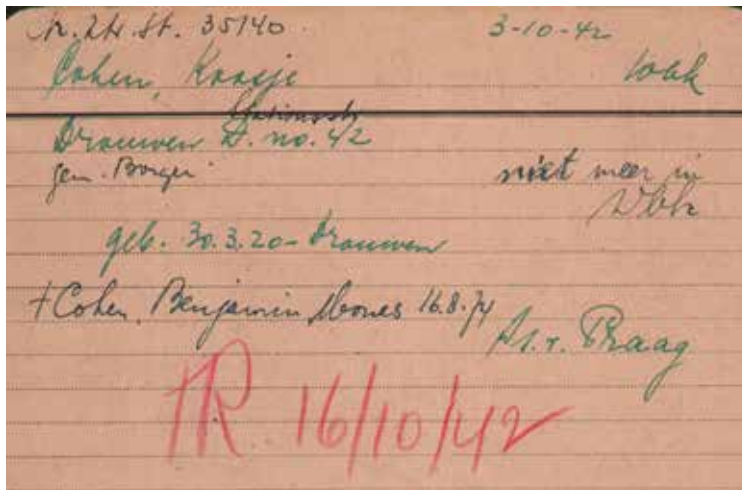 35140 3-10-42
Cohen, Kaatje Wbk
Stationsstr
Drouwen A. no. 42
gem. Borger niet meer in
Wbk
geb. 30.3.20 - Drouwen
+ Cohen, Benjamin Mones 16.8.74
v. Praag
TR 16/10/42